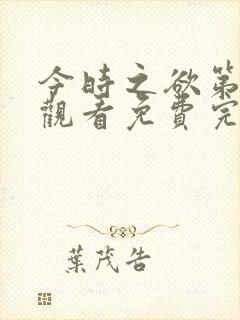 今時之欲第
觀看免費完
葉茂告